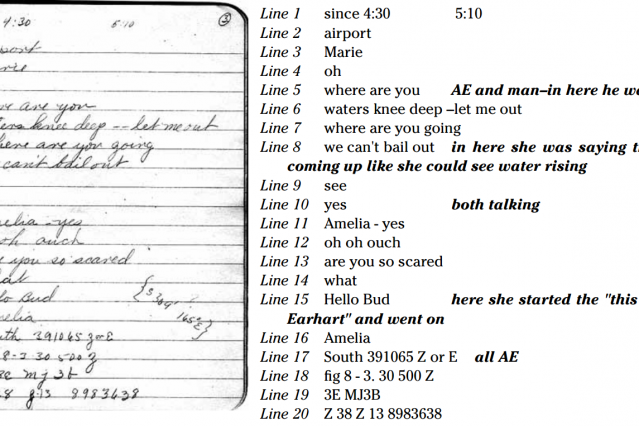 4:30 5:10 ③
port
rie
re are you
ters knee deep -- let me out
here are you going
can't bail out
elia - yes
oh ouch
e you so scared
hat
lo Bud
elia
uth 391065 z or E
8-3 30 500 z
mj 3b
8 8983638
Line 1 since 4:30 5:10
Line 2 airport
Line 3 Marie
Line 4 oh
Line 5 where are you AE and man–in here he w
Line 6 waters knee deep –let me out
Line 7 where are you going
Line 8 we can't bail out in here she was saying t
coming up like she could see water rising
Line 9 see
Line 10 yes both talking
Line 11 Amelia - yes
Line 12 oh oh ouch
Line 13 are you so scared
Line 14 what
Line 15 Hello Bud here she started the "this
Earhart" and went on
Line 16 Amelia
Line 17 South 391065 Z or E all AE
Line 18 fig 8 - 3. 30 500 Z
Line 19 3E MJ3B
Line 20 Z 38 Z 13 8983638